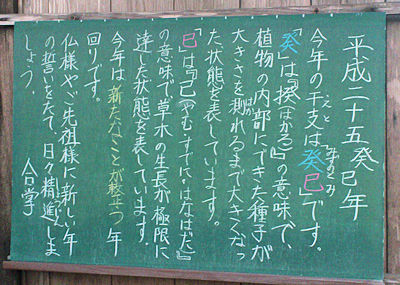 平成二十五癸巳年
今年の干支は「癸巳」です。
えと みずのとみ
「癸」は『揆(はかる)』の意味で、
植物の内部にできた種子が
大きさを測れるまで大きくなっ
はか
た状態を表しています。
「巳」は『已(やむ・すでに・はなはだ)』
の意味で草木の生長が極限に
達した状態を表しています。
今年は新たなことが整立つ年
回りです。
仏様やご先祖様に新しい年
の誓いをたて、日々精進しま
しょう。 合掌